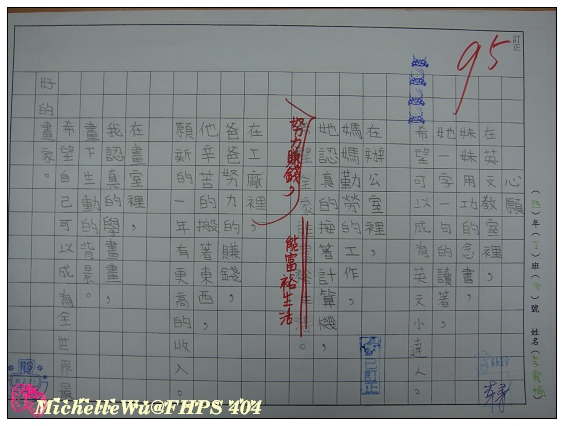 訂正
95
心願
在英文教室裡，
妹妹用功的念書，
她一字一句的讀著，
希望可以成為英文小達人。
在辦公室裡，
媽媽勤勞的工作，
她認真的按著計算機，
努力賺錢，
能富裕生活
在工廠裡，
爸爸努力的賺錢，
他辛苦的搬著東西，
願新的一年有更高的收入。
在畫室裡，
我認真的學畫畫，
畫下生動的背景。
希望自己可以成為全世界最
好的畫家。
已訂正
MichelleWu@FHPS 404